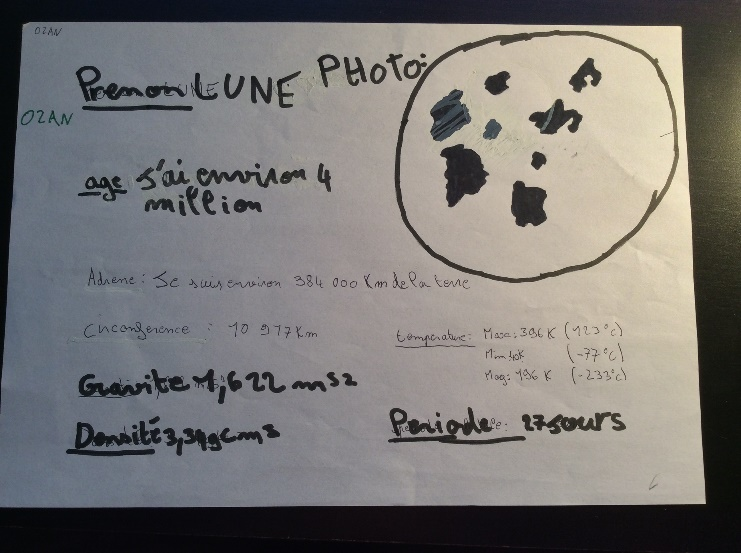 OZAN
Prenom LUNE PHOTO:
OZAN
age J'ai environ 4
million
Adresse : Je suis environ 384 000 Km de la terre
Circonférence : 10 917 Km
température : Max : 396 K (123°C)
Min 40K (-77°C)
Moy : 196 K (-233°C)
Gravité 1,622 ms2
Densité 3,34gcm3
Periode : 27 jours